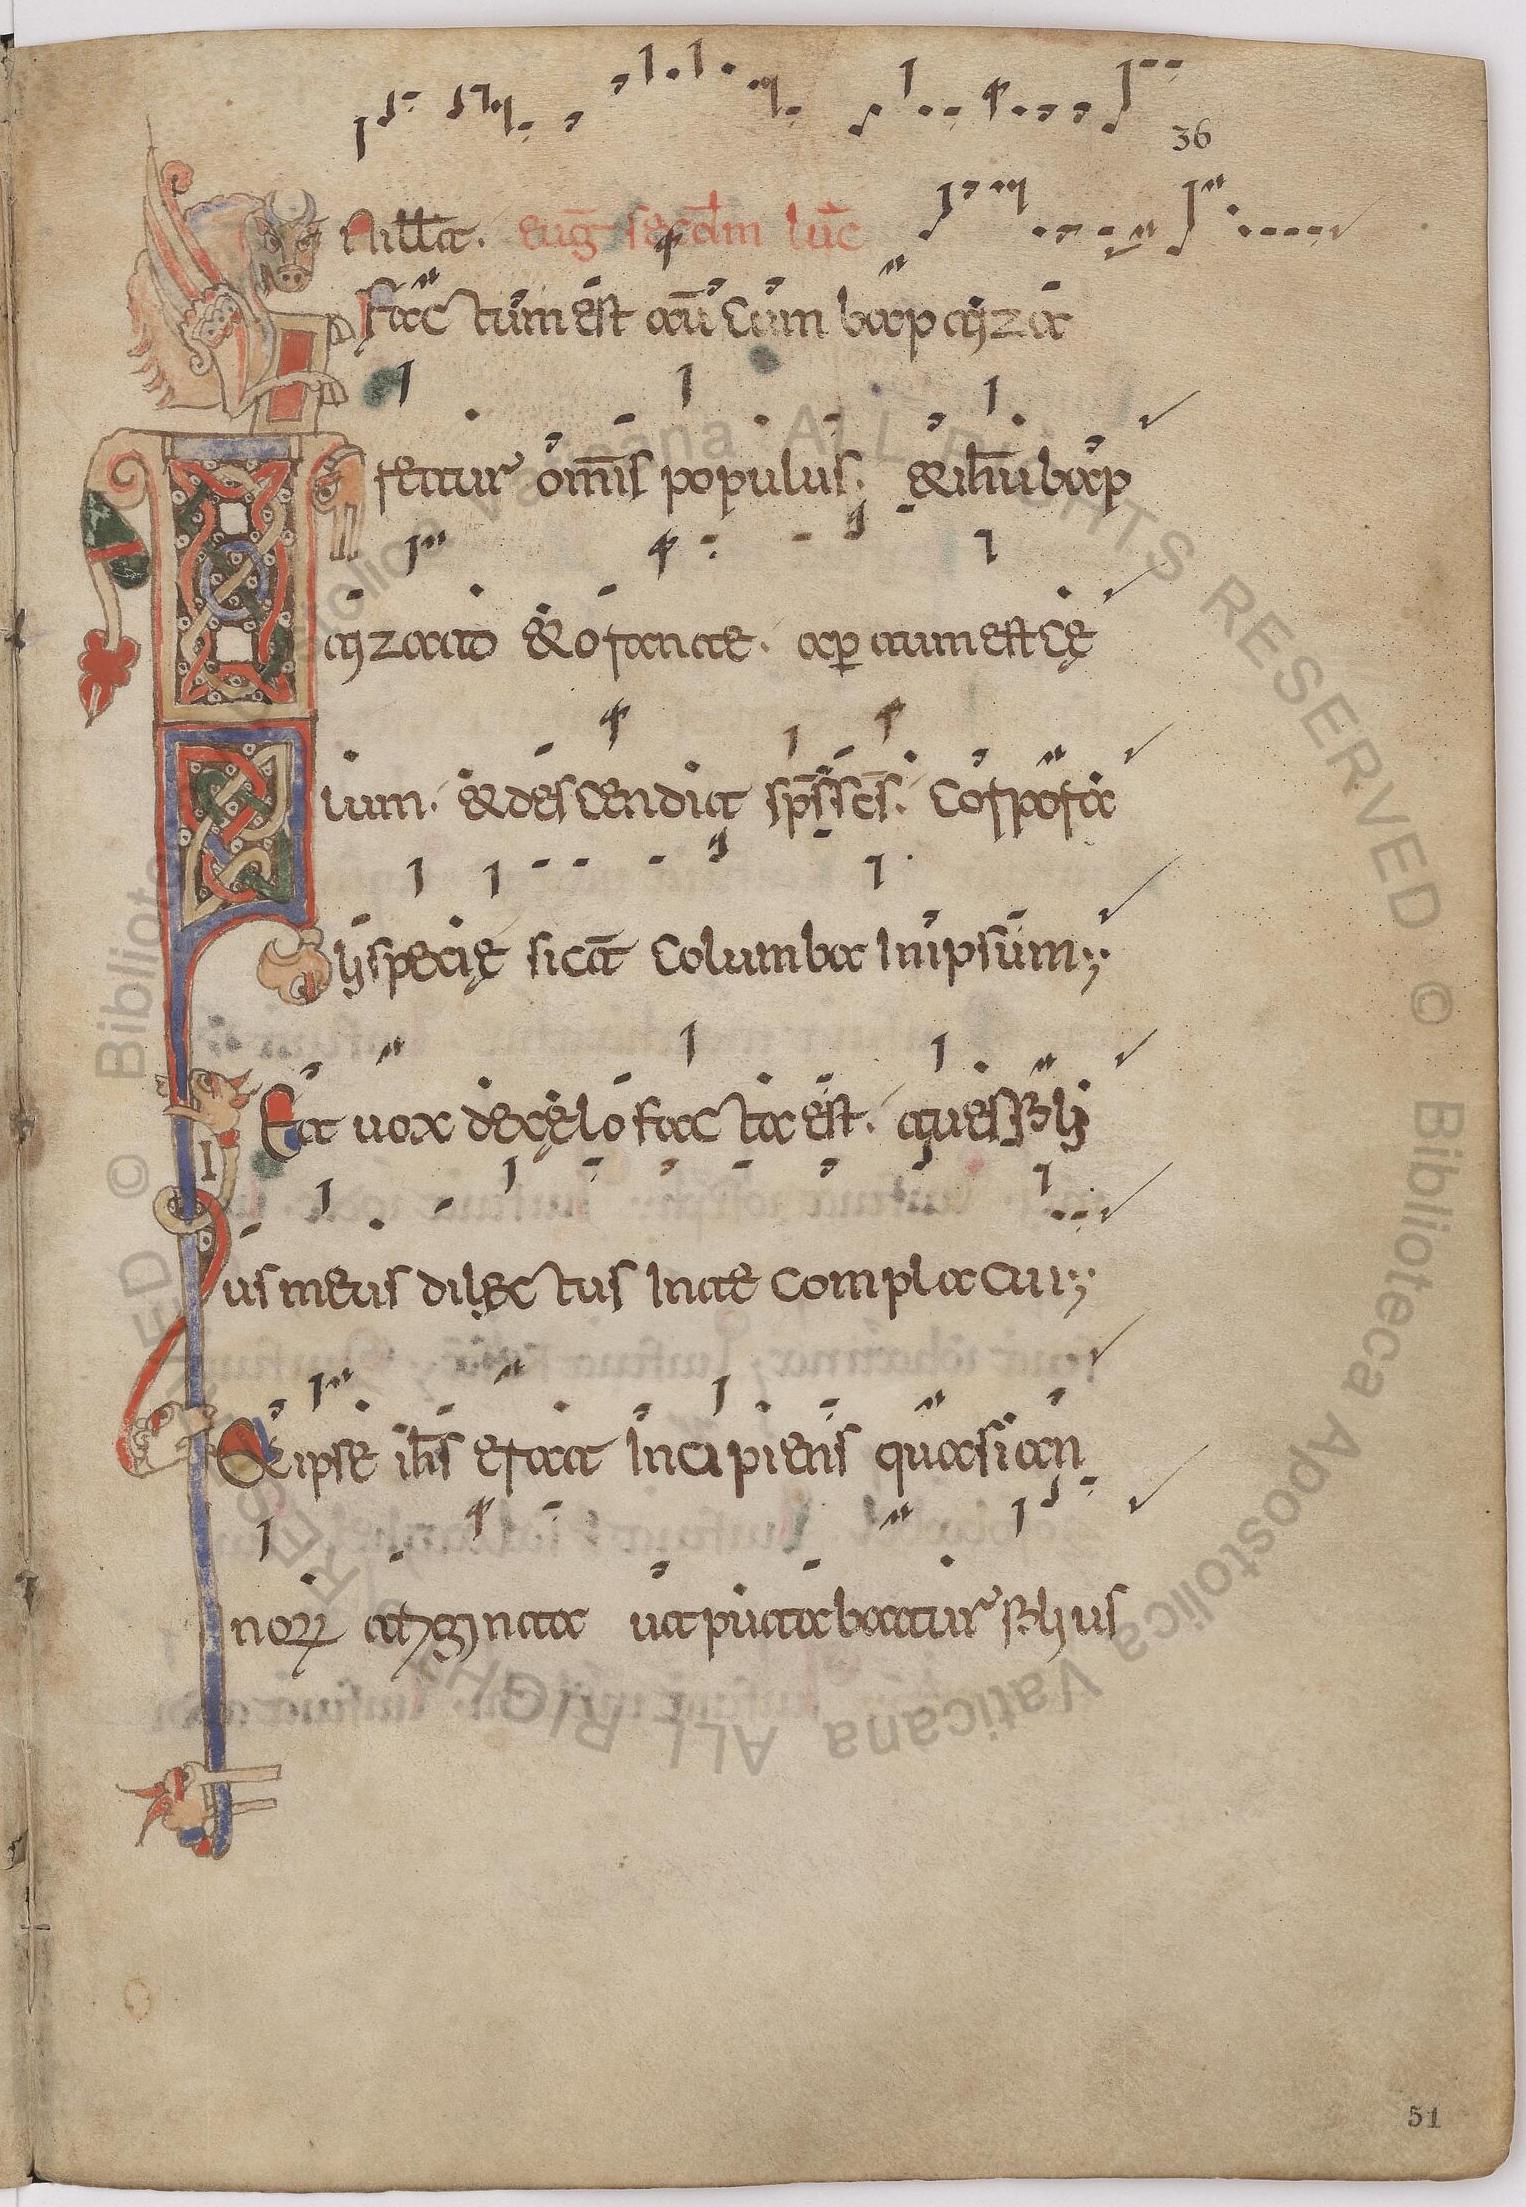 36
N ill̅ t. eug̅ secd̅m luc̅
factum est au̅ cum baptiza
retur om̅is populus. & ih̅u bap
tizato & orante. aꝑtum est cę
lum. & descendit sp̅s sc̅s. corpora
li specię sicut columba in ipsum;
Et uox de cęlo facta est. tu es fili
us meus dilectus in te complacui;
& ipse ih̅s erat incipiens quasi an
noꝝ triginta ut putabatur filius
51
© Biblioteca Apostolica Vaticana ALL RIGHTS RESERVED
© Biblioteca Apostolica Vaticana ALL RIGHTS RESERVED